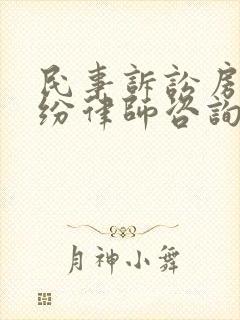 民事訴訟房
紛律師咨詢
月神小舞